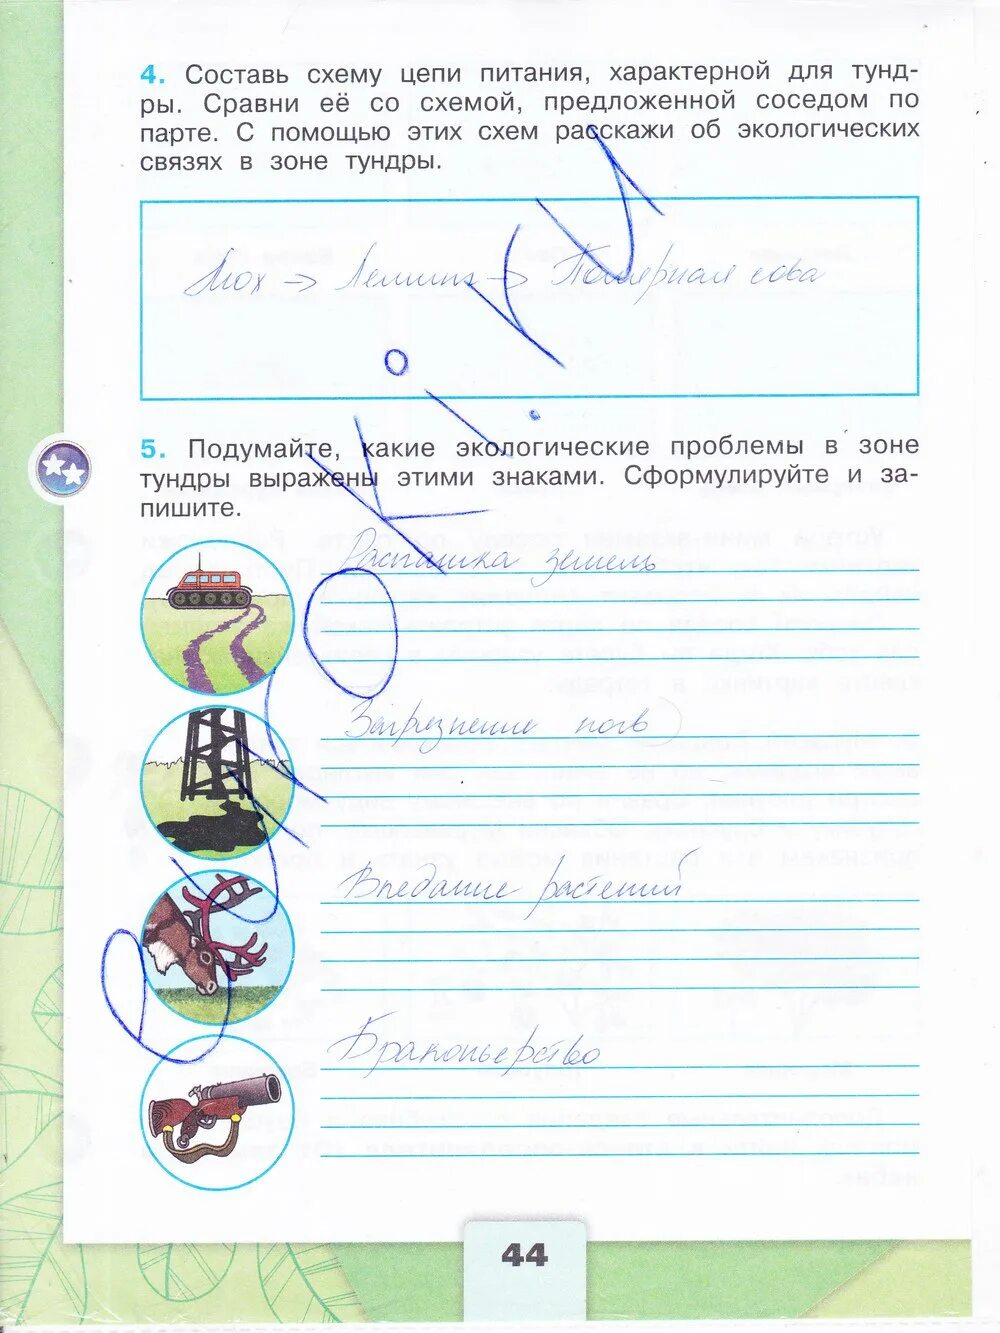 4. Составь схему цепи питания, характерной для тунд-
ры. Сравни её со схемой, предложенной соседом по
парте. С помощью этих схем расскажи об экологических
связях в зоне тундры.
Мох → Лемминг → Полярная сова
5. Подумайте, какие экологические проблемы в зоне
тундры выражены этими знаками. Сформулируйте и за-
пишите.
Распашка земель
Загрезнение почв
Впедание растений
Браконьерство
44